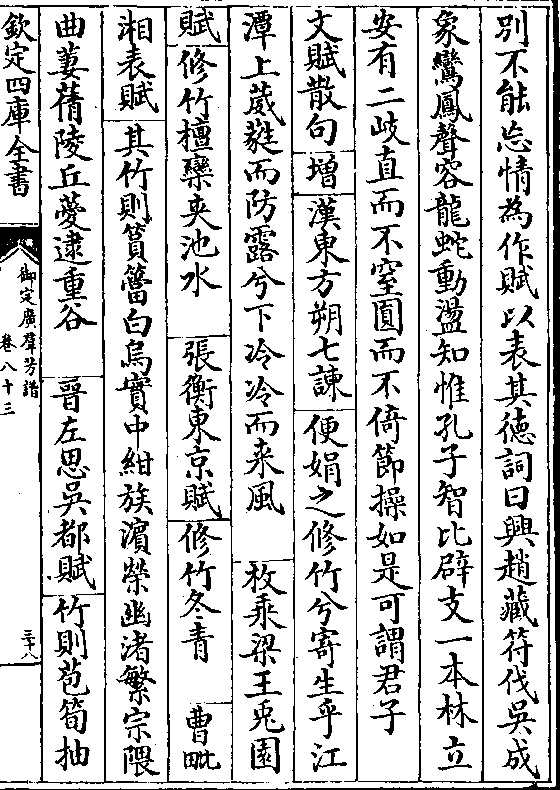 別不能忘情為作賦以表其德詞曰興趙藏符伐吳成
象鸞鳳聲容龍蛇動盪知惟孔子智比辟支一本林立
安有二歧直而不窒圓而不倚節操如是可謂君子
文賦散句 增 漢東方朔七諫 便娟之修竹兮寄生乎江
潭上葳蕤而防露兮下冷冷而來風 枚乘梁王兎園
賦 修竹檀欒夾池水 張衡東京賦 修竹冬青 曹毗
湘表賦 其竹則篔簹白烏實中紺族濵榮幽渚繁宗隈
曲萋蒨陵丘薆逮重谷 晉左思吳都賦 竹則苞筍抽
欽定四庫全書
御定廣羣芳譜
卷八十三
三十八